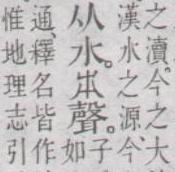 之瀆。今之大
漢水之源今
从水。𠂔聲。子
如
通釋名皆作
惟地理志引